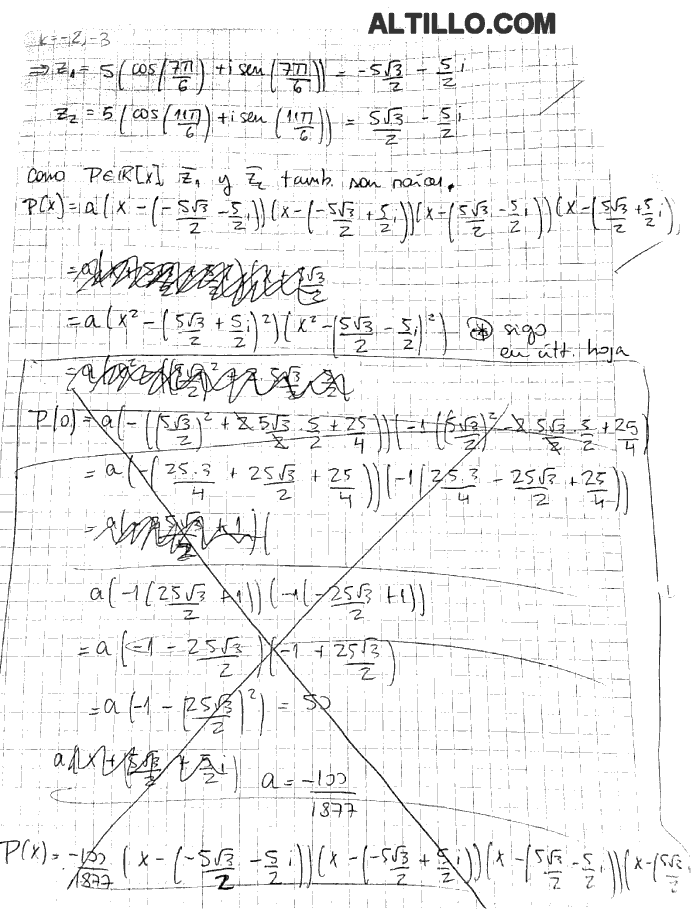 ALTILLO.COM
k=-2,-3
⇒ z₁ = 5(cos(7π/6) + i sen(7π/6)) = -5√3/2 - 5/2 i
z₂ = 5(cos(11π/6) + i sen(11π/6)) = 5√3/2 - 5/2 i
Como P∈ℝ[x], z̄₁ y z̄₂ tamb. son raíces.
P(x) = a(x-(-5√3/2 - 5/2 i))(x-(-5√3/2 + 5/2 i))(x-(5√3/2 - 5/2 i))(x-(5√3/2 + 5/2 i))
= a(x² - (5√3/2 + 5/2 i)²)(x² - (5√3/2 - 5/2 i)²) ⊛ sigo
en últ. hoja
P(0) = a(-((5√3/2)² + 2 5√3/2 · 5/2 + 25/4))(-1((5√3/2)² - 2 5√3/2 · 5/2 + 25/4)
= a(-(25·3/4 + 25√3/2 + 25/4))(-1(25·3/4 - 25√3/2 + 25/4))
a(-1(25√3/2 + 1))(-1(-25√3/2 + 1))
= a(-1 - 25√3/2)(-1 + 25√3/2)
= a(-1 - (25√3/2)²) = 50
a = -100/1877
P(x) = -100/1877 (x-(-5√3/2 - 5/2 i))(x-(-5√3/2 + 5/2 i))(x-(5√3/2 - 5/2 i))(x-(5√3/2